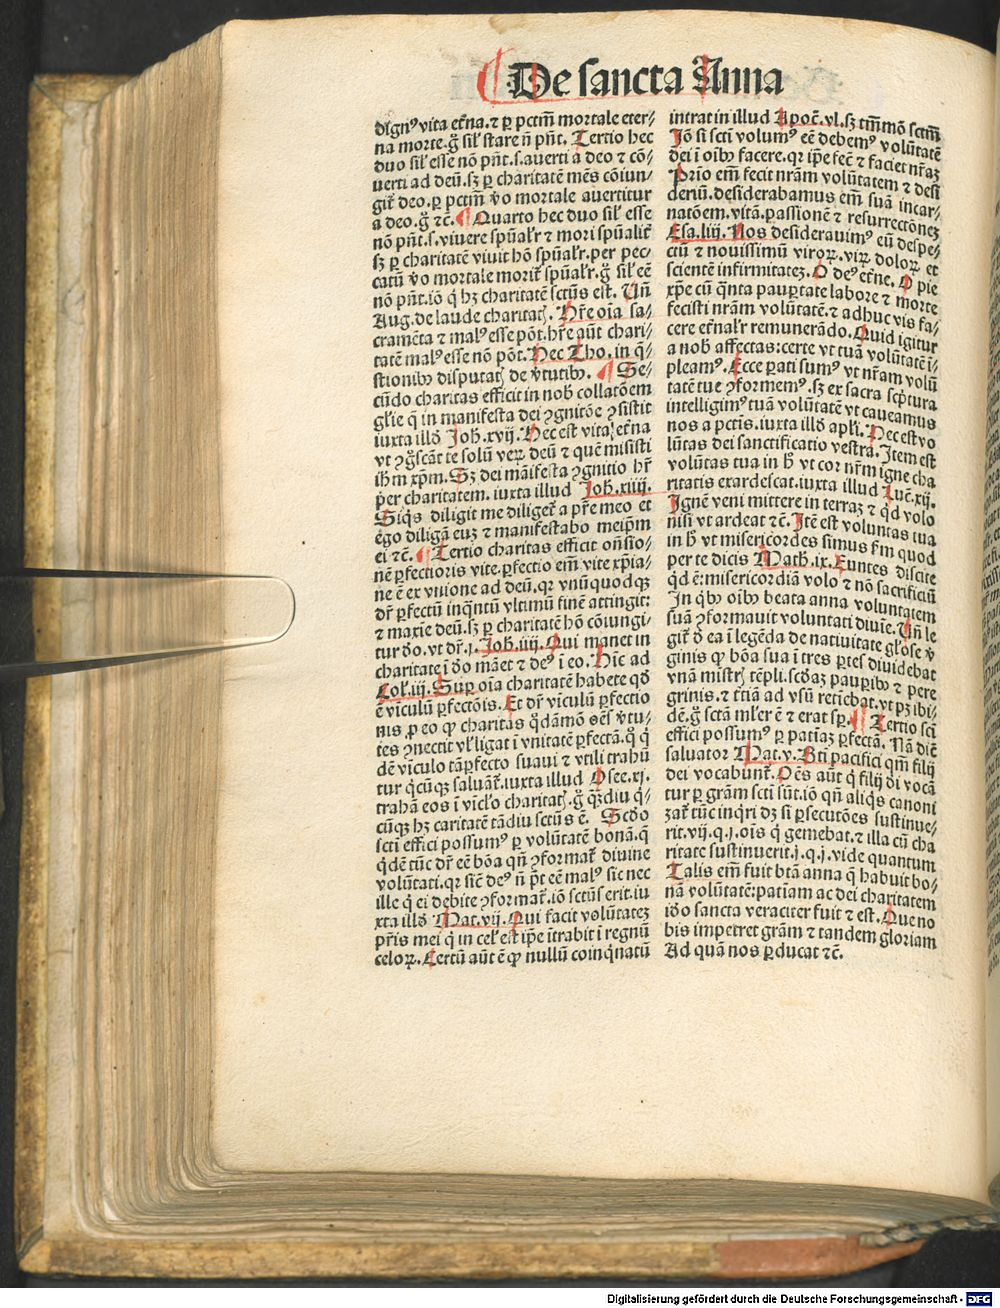 De sancta Anna
dignꝰ vita et̃na. ⁊ ꝑ pctm̃ mortale eter⸗
na morte. g̃ sil̃ stare ñ pñt. Tertio hec
duo sil̃ esse nõ pñt. s. auerti a deo ⁊ cõ⸗
uerti ad deũ. sꝫ ꝑ charitatẽ mẽs cõiun⸗
git̃ deo. ꝑ pctm̃ v̾o mortale auertitur
a deo. g̃ ⁊c̃. ¶ Quarto hec duo sil̃ esse
nõ pñt. s. viuere spũal̃r ⁊ mori spũalit̃
sꝫ ꝑ charitatẽ viuit hõ spũal̃r. per pec⸗
catũ v̾o mortale morit̃ spũal̃r. g̃ sil̃ eẽ
nõ pñt. iõ q̇ hꝫ charitatẽ sctũs est. Vñ
Aug. de laude charitatꝭ. Hr̃e oĩa sa⸗
cramẽta ⁊ malꝰ esse põt. hr̃e aũt chari⸗
tatẽ malꝰ esse nõ põt. Hec Tho. in q̃⸗
stionibꝫ disputatꝭ de v̾tutibꝫ. ¶ Se⸗
cũdo charitas efficit in nob̃ collatõem
gl̃ie q̃ in manifesta dei ꝯgnitõe ꝯsistit
iuxta illđ Joh̃. xvij. Hec est vita et̃na
vt ꝯg̃scãt te solũ veꝝ deũ ⁊ quẽ misisti
ih̃m xp̃m. Sꝫ dei mãifesta ꝯgnitio hr̃
per charitatem. iuxta illud Joh̃. xiiij.
Siq̇s diligit me diliget̃ a pr̃e meo et
ego diligã euꝫ ⁊ manifestabo meip̃m
ei ⁊c̃. ¶ Tertio charitas efficit oñsio⸗
nẽ ꝑfectioris vite. ꝑfectio em̃ vite xp̃ia⸗
ne ẽ ex vnione ad deũ. qꝛ vnũquodqꝫ
dr̃ ꝑfectũ inq̃ntũ vltimũ finẽ attingit:
⁊ maxĩe deũ. sꝫ ꝑ charitatẽ hõ cõiungi⸗
tur đo. vt dr̃. j. Joh̃. iiij. Qui manet in
charitate ĩ đo mãet ⁊ deꝰ ĩ eo. Hĩc ad
Col̃. iij. Suꝑ oĩa charitatẽ habete qđ
ẽ vĩculũ ꝑfectõis. Et dr̃ vĩculũ ꝑfectio
nis ꝓ eo ꝙ charitas q̃dãmõ oẽs v̾tu⸗
tes ꝯnectit vl̃ ligat ĩ vnitatẽ ꝑfectã. q̃ q̇
dẽ vĩculo tãꝑfecto suaui ⁊ vtili trahũ
tur q̇cũqꝫ saluãt̃. iuxta illud Osee. xj.
trahã eos ĩ vĩcl̃o charitatꝭ. g̃ q̃ꝫdiu q̇⸗
cũqꝫ hꝫ caritatẽ tãdiu sctũs ẽ. Scđo
scti effici possumꝰ ꝑ volũtatẽ bonã. q̃
q̇dẽ tũc dr̃ eẽ bõa qñ ꝯformat̃ diuine
volũtati. qꝛ siẽ deꝰ ñ põt eẽ malꝰ sic nec
ille q̇ ei debite ꝯformat̃. iõ sctũs erit. iu
xta illđ Mat. vij. Qui facit volũtateꝫ
pr̃is mei q̇ in cel̃ est ip̃e ĩtrabit ĩ regnũ
celoꝝ. Certũ aũt ẽ ꝙ nullũ coinq̇natũ
intrat in illud Apoc̃. vl. sꝫ tm̃mõ sctm̃
Jõ si scti volumꝰ eẽ debemꝰ volũtatẽ
dei ĩ oĩbꝫ facere. qꝛ ip̃e fec̃ ⁊ faciet nr̃aꝫ
Prio em̃ fecit nr̃am volũtatem ⁊ desi
deriũ. desiderabamus em̃ suã incar⸗
natõem. vitã. passionẽ ⁊ resurrectõneꝫ
Esa. liij. Nos desiderauimꝰ eũ despe⸗
ctũ ⁊ nouissimũ viroꝝ. viꝝ doloꝝ et
scientẽ infirmitateꝫ. O deꝰ et̃ne. O pie
xp̃e cũ q̃nta pauꝑtate labore ⁊ morte
fecisti nr̃am volũtatẽ. ⁊ adhuc vis fa⸗
cere et̃nal̃r remunerãdo. Quid igitur
a nob̃ affectas: certe vt tuã volũtatẽ ĩ⸗
pleamꝰ. Ecce ꝑati sumꝰ vt nr̃am volũ
tatẽ tue ꝯformemꝰ. sꝫ ex sacra scptura
intelligimꝰ tuã volũtatẽ vt caueamus
nos a pctis. iuxta illđ apl̃i. Hec est vo
lũtas dei sanctificatio vestra. Item est
volũtas tua in h̃ vt cor nr̃m igne cha
ritatis exardescat. iuxta illud Luc̃. xij.
Jgnẽ veni mittere in terraꝫ ⁊ q̇d volo
nisi vt ardeat ⁊c̃. Jtẽ est voluntas tua
in h̃ vt misericordes simus fm quod
per te dicis Math̃. ix. Euntes discite
q̇d ẽ: misericordiã volo ⁊ nõ sacrificiũ
Jn q̇bꝫ oĩbꝫ beata anna voluntatem
suã ꝯformauit voluntati diuĩe. Vñ le
git̃ đ ea ĩ legẽda de natiuitate gl̃ose v̾
ginis ꝙ bõa sua ĩ tres ꝑtes diuidebat
vnã mistrꝭ tẽpli. scđaꝫ pauꝑibꝫ ⁊ pere
grinis. ⁊ t̃tiã ad vsũ retĩebat. vt pꝫ ibi⸗
dẽ. g̃ sctã ml̃r ẽ ⁊ erat sp̃. ¶ Tertio scti
effici possumꝰ ꝑ patĩaꝫ ꝑfectã. Nã dic̃
saluator Mat. v. Bti pacifici qm̃ filij
dei vocabunt̃. Oẽs aũt q̇ filij đi vocã
tur ꝑ grãm scti sũt. iõ qñ aliq̇s canoni
zat̃ tũc inq̇ri dꝫ si ꝑsecutões sustinue⸗
rit. vij. q. j. oĩs q̇ gemebat. ⁊ illa cũ cha
ritate sustinuerit. j. q. j. vide quantum
Talis em̃ fuit btã anna q̃ habuit bo⸗
nã volũtatẽ: patĩam ac dei charitatem
iđo sancta veraciter fuit ⁊ est. Que no
bis impetret grãm ⁊ tandem gloriam
Ad quã nos ꝑducat ⁊c̃.
Digitalisierung gefördert durch die Deutsche Forschungsgemeinschaft - DFG